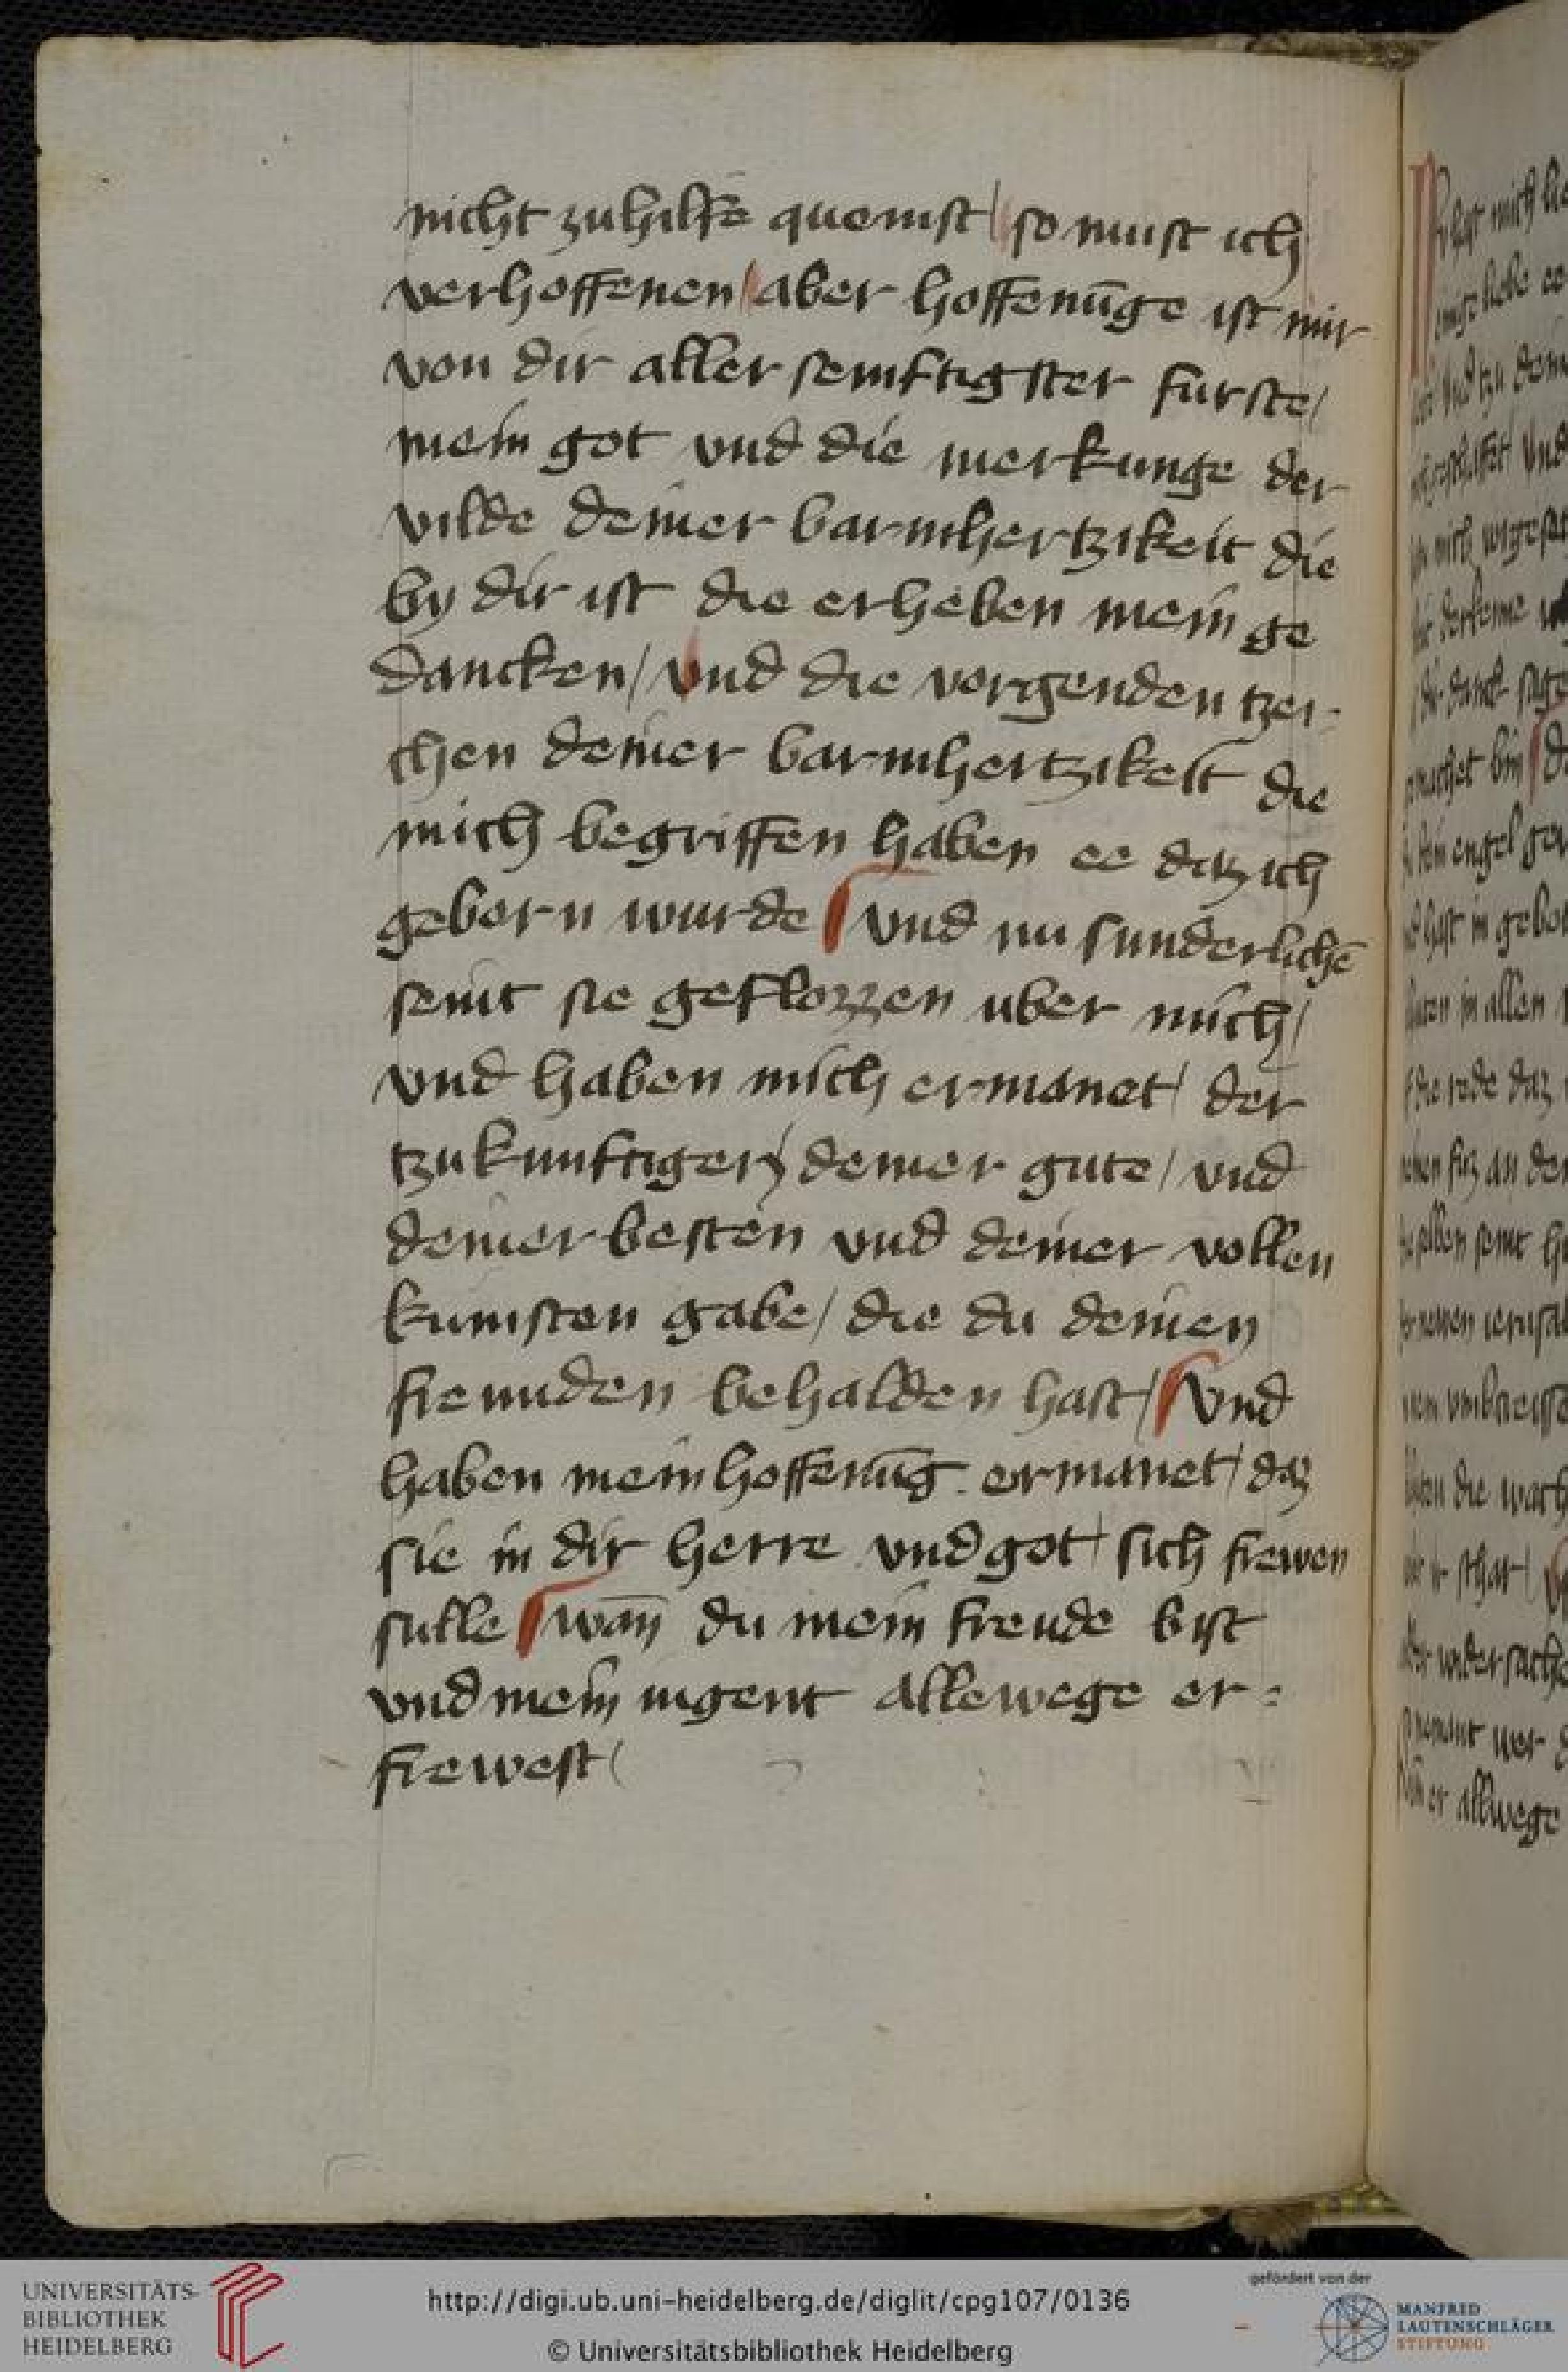 nicht zuhilffe quemst / so must ich
verhoffenen / aber hoffenūge ist mir
von dir aller semftigster furste /
mein got vnd die merkunge der
vilde deiner barmhertzikeit die
by dir ist die erheben mein ge
dancken / vnd die vorgenden tzei-
chen deiner barmhertzikeit die
mich begriffen haben ee daz ich
geborn wurde vnd nu sunderlichē
seint sie geflozzen uber mich /
vnd haben mich ermanet / der
tzukunftigen deiner gute / vnd
deiner besten vnd deiner vollen
kumsten gabe / die du deinen
freunden behalden hast / vnd
haben mein hoffenūg ermanet / daz
sie in dir herre vnd got / sich frewen
sulle wan̄ du mein freude bist
vnd mein iugent allewege er=
frewest /
UNIVERSITÄTS-
BIBLIOTHEK
HEIDELBERG
http://digi.ub.uni-heidelberg.de/diglit/cpg107/0136
© Universitätsbibliothek Heidelberg
gefördert von der
MANFRED
LAUTENSCHLÄGER
STIFTUNG